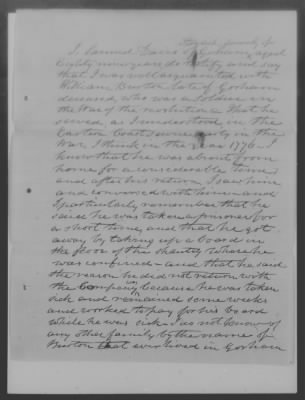 I Samuel Davis of Gorham, aged
Eighty nine years do testify and say
that I was well acquainted with
William Burton late of Gorham
deceased, who was a soldier in
the War of the revolution. That he
served, as I understood in the
Eastern Coast somewhere in the
War I think in the year 1776. I
know that he was absent from
home for a considerable time
and after his return I saw him
and conversed with him and
I particularly remember that he
said he was taken a prisoner for
a short time, and that he got
away by taking up a board in
the floor of the shanty where he
was confined - and that he said
the reason he did not return with
the Company was because he was taken
sick and remained some weeks
and worked to pay for his board
while he was sick - I do not know of
any other family by the name of
Burton that ever lived in Gorham